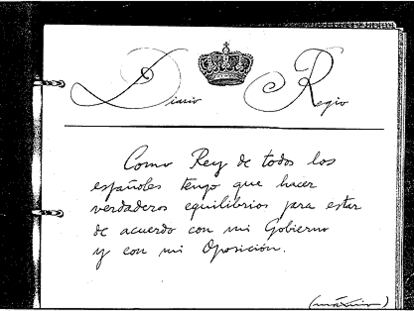 Diario Regio
Como Rey de todos los
españoles tengo que hacer
verdaderos equilibrios para estar
de acuerdo con mi Gobierno
y con mi Oposición.
(máximo)